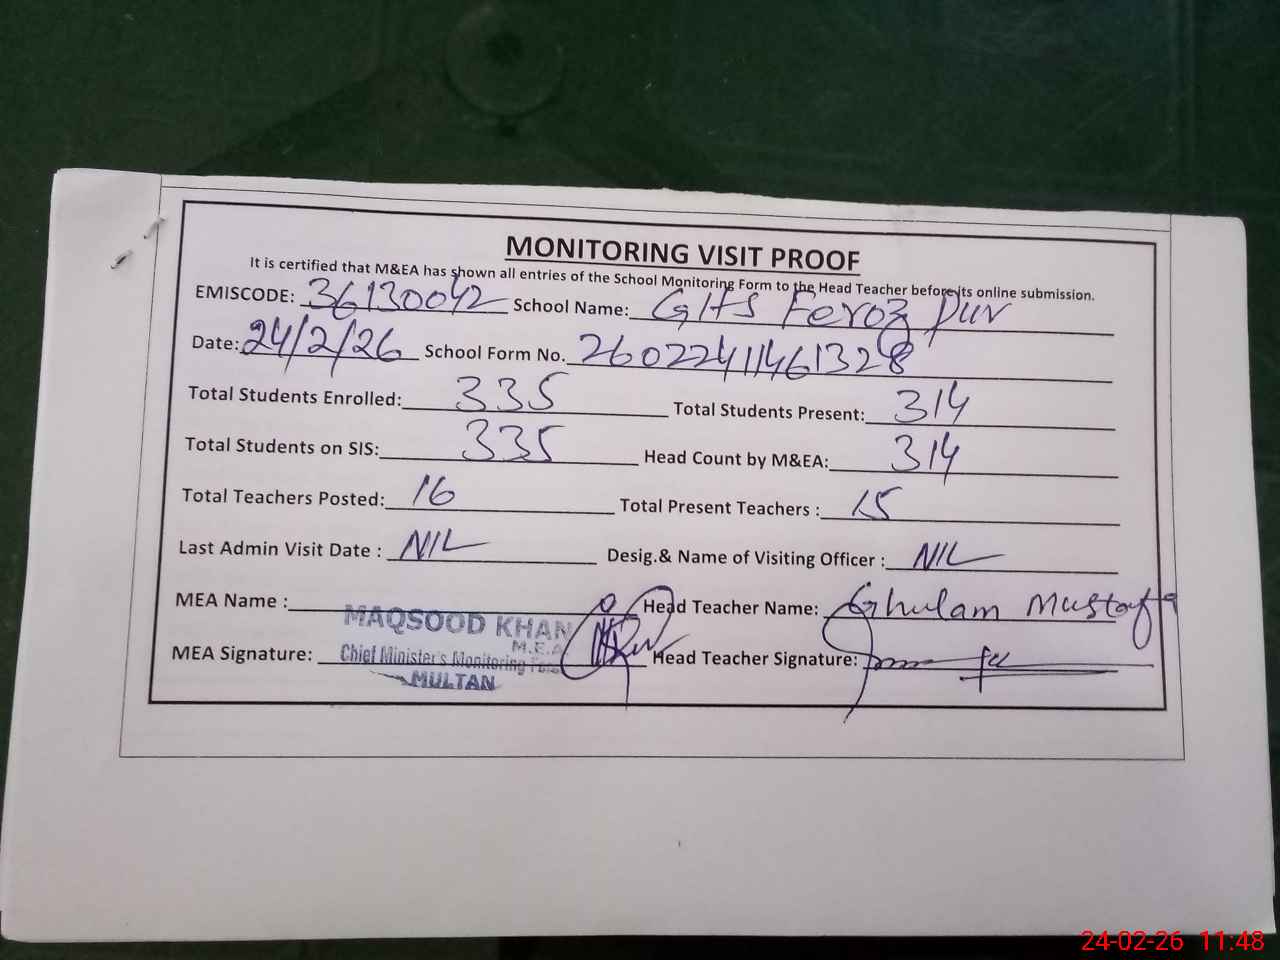 MONITORING VISIT PROOF
It is certified that M&EA has shown all entries of the School Monitoring Form to the Head Teacher before its online submission.
EMISCODE: 36130042 School Name: GHS Feroz Pur
Date: 24/2/26 School Form No. 26022411461328
Total Students Enrolled: 335 Total Students Present: 314
Total Students on SIS: 335 Head Count by M&EA: 314
Total Teachers Posted: 16 Total Present Teachers : 15
Last Admin Visit Date : NIL Desig.& Name of Visiting Officer : NIL
MEA Name : Head Teacher Name: Ghulam Mustafa
MAQSOOD KHAN
M.E.A
MEA Signature: Chief Minister's Monitoring Force Head Teacher Signature:
MULTAN
24-02-26 11:48